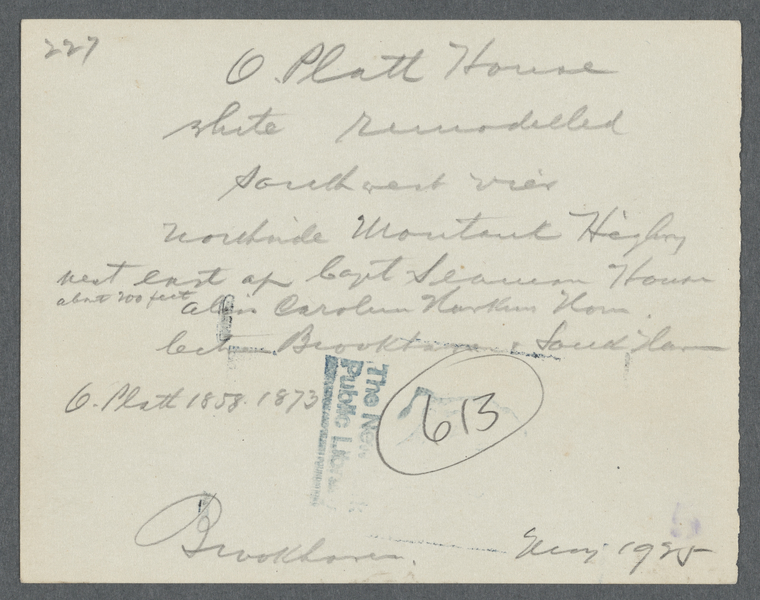 227
O. Platt House
white remodelled
Southwest view
northside Montauk Highway
next east of Capt Seaman House
about 200 feet
alias Carolin Hawkins Hom.
between Brookhaven & South Haven
O. Platt 1858. 1873
The New
Public Library
613
Brookhaven.
May 1925
5